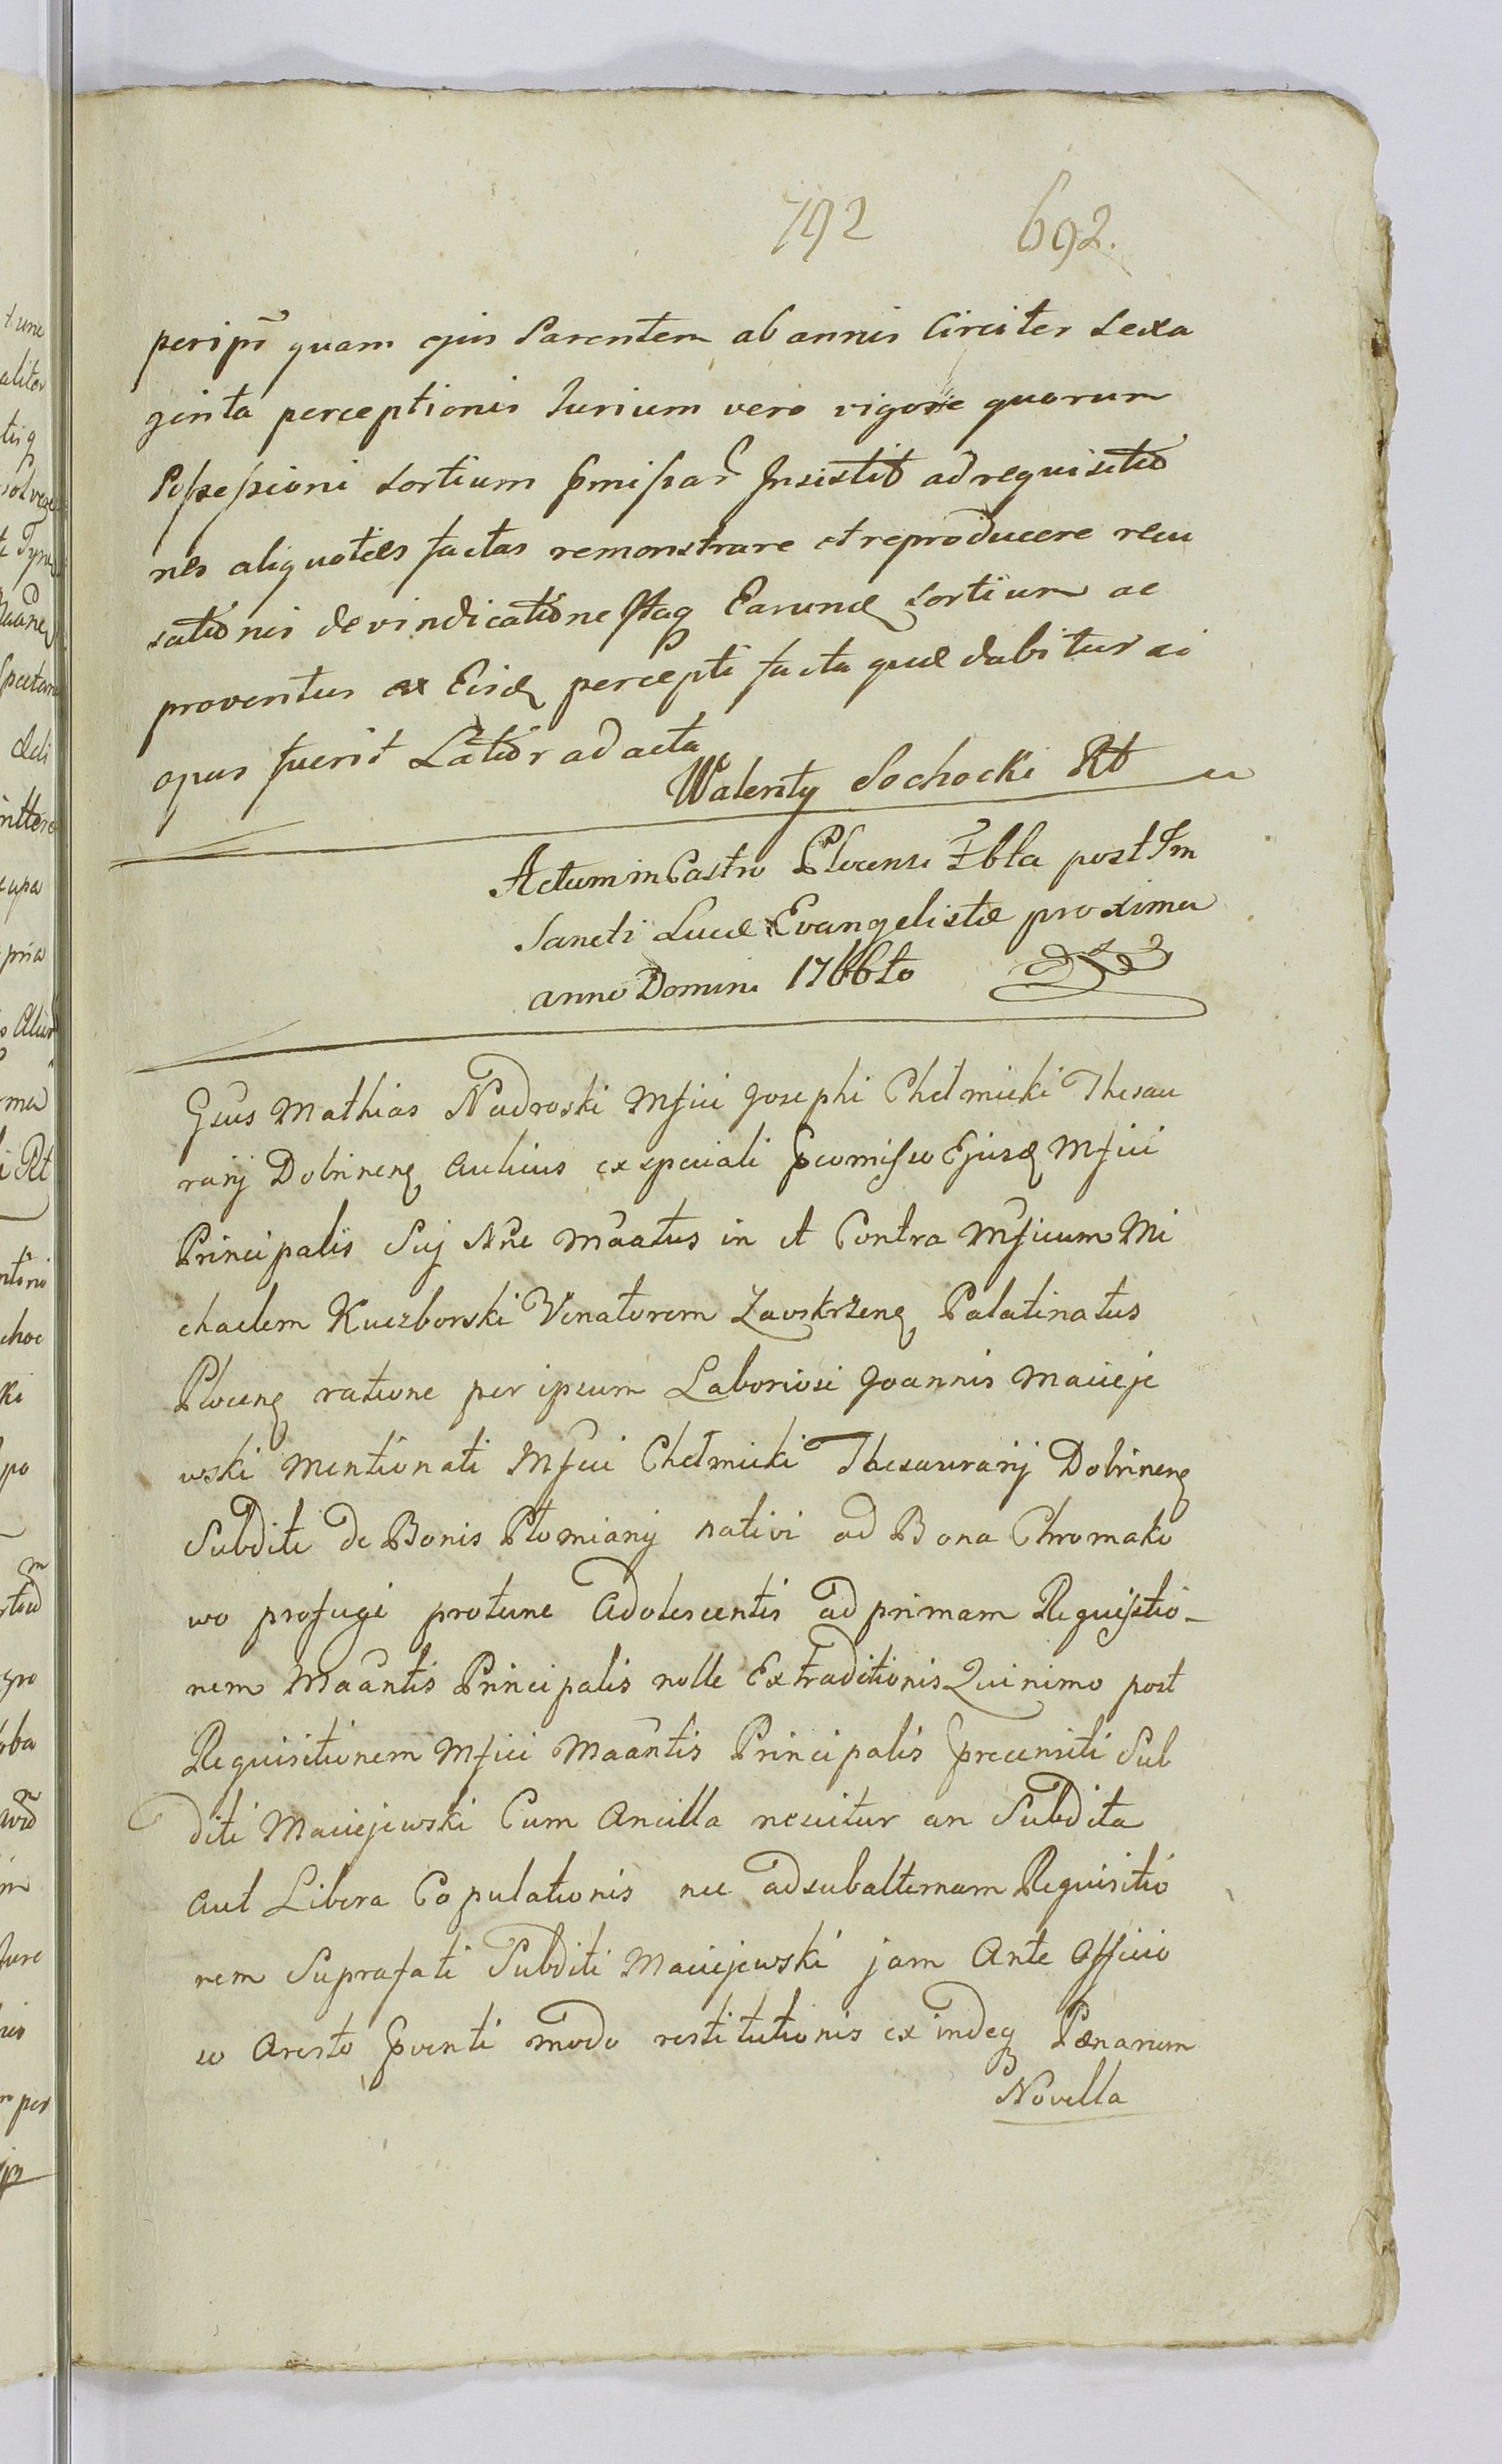 792 692.
per ips̄ quam ejus Parentem ab annis Circiter sexa
ginta perceptionis Jurium vero vigore quorum
Possessioni sortium p̄missar̄ Insistit ad requisitio
nes aliquoties factas remonstrare et reproducere recu
sationis de vindicatione Itaq Earund sortium ac
proventus ex Eisd percepti facta quæ dabitur si
opus fuerit Latior ad acta
Walenty Sochocki Rt
Actum in Castro Plocensi post
Sancti Lucæ Evangelistæ proxima
anno Domini 1766to
Gsus Mathias Nadroski Mfici Josephi Chełmicki Thesau
rarij Dobrinen Aulicus ex speciali Ejusd Mfici
Principalis Suj Nne Maatus in et Contra Mficum Mi
chaelem Kuczborski Venatorem Zawskrzen Palatinatus
Plocen ratione per ipsum Laboriosi Joannis Macieje
wski mentionati Mfici Chełmicki Thesaurarij Dobrinen
Subditi de Bonis Płomiany nativi ad Bona Chromako
wo profugi protunc Adolescentis ad primam Requisitio-
nem Maantis Principalis nolle Extraditionis Quinimo post
Requisitionem Mfici Maantis Principalis precensiti Sub
diti Maciejewski Cum Ancilla nescitur an Subdita
aut Libera Copulationis nec ad subalternam Requisitio
nem Suprafati Subditi Maciejewski jam Ante Officio
so Aresto pventi modo restitutionis exindeq Pænarum
Novella